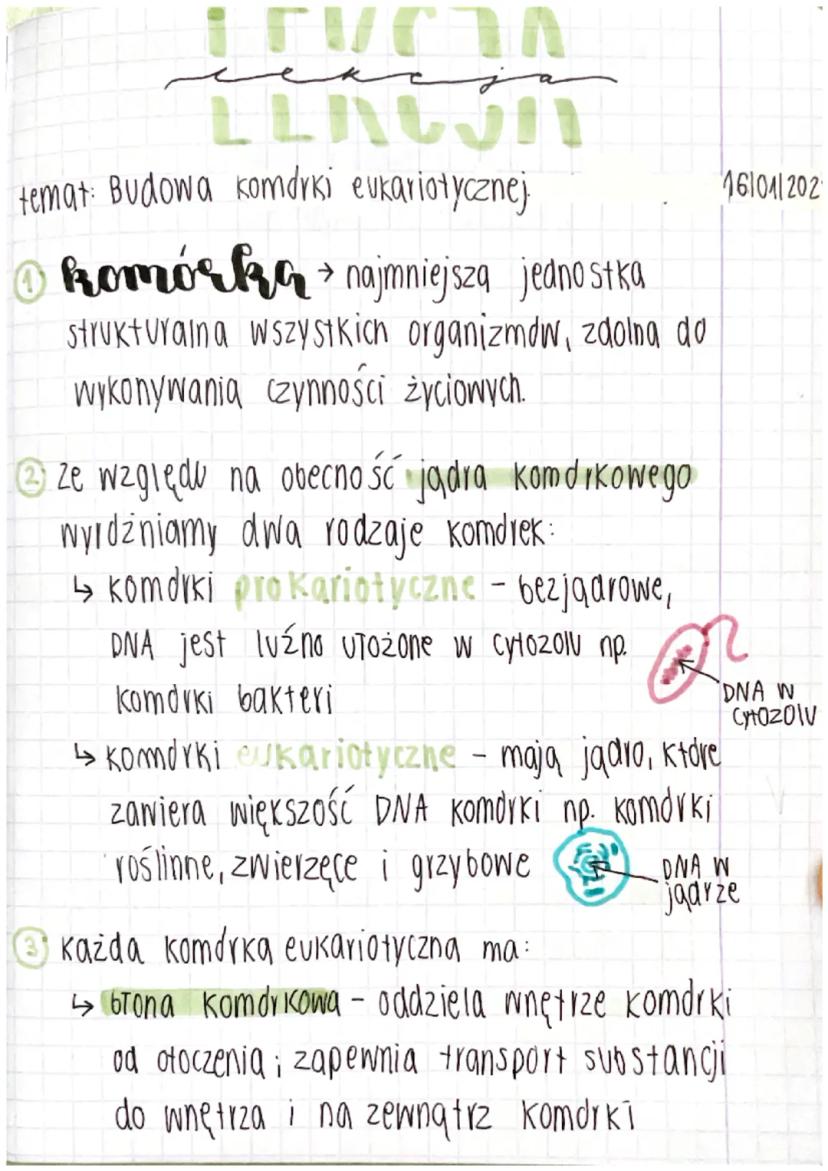 LEKCJA
lekcja
temat: Budowa komórki eukariotycznej. 16/01/202
① komórka → najmniejsza jednostka
strukturalna wszystkich organizmów, zdolna do
wykonywania czynności życiowych.
② ze względu na obecność jądra komórkowego
wyróżniamy dwa rodzaje komórek:
↳ komórki prokariotyczne - bezjądrowe,
DNA jest luźno ułożone w cytozolu np.
komórki bakteri
DNA w
cytozolu
↳ komórki eukariotyczne - mają jądro, które
zawiera większość DNA komórki np. komórki
roślinne, zwierzęce i grzybowe
DNA w
jądrze
③ każda komórka eukariotyczna ma:
↳ błona komórkowa - oddziela wnętrze komórki
od otoczenia; zapewnia transport substancji
do wnętrza i na zewnątrz komórki